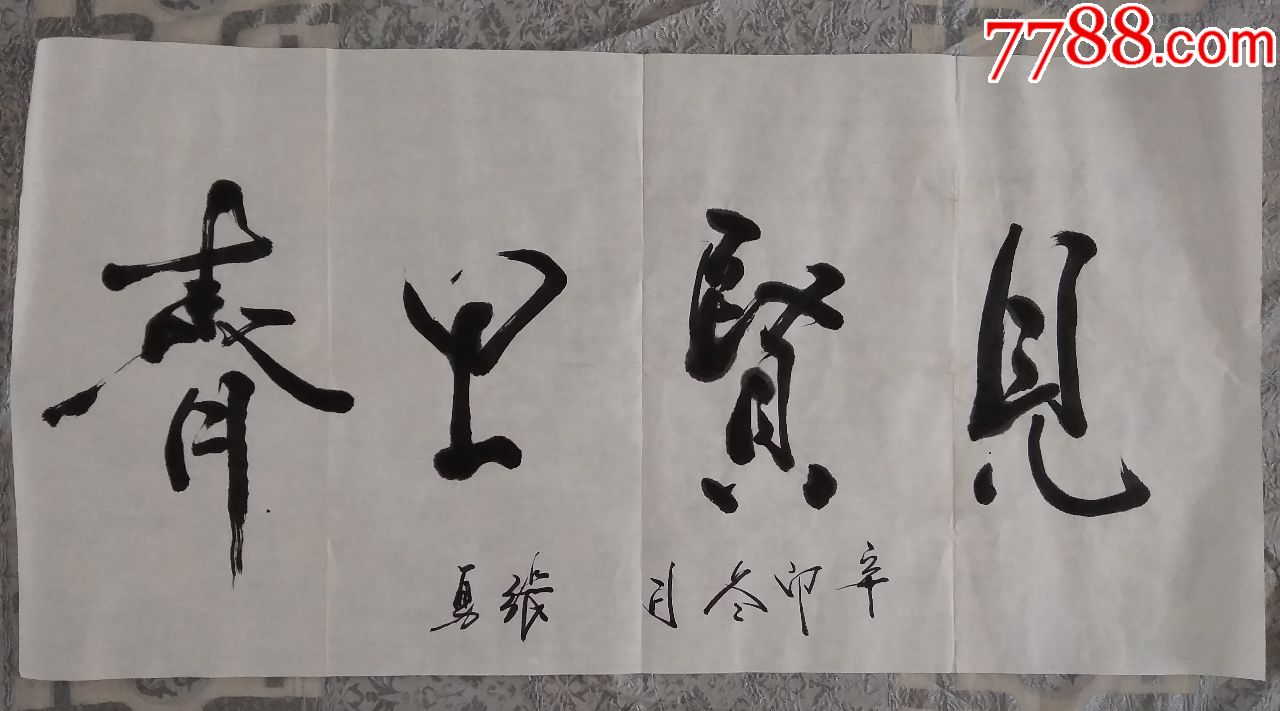 7788.com
見賢思齊
辛卯冬月 張勇